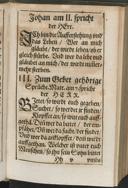 Johan am 11. spricht
der HErr.
Ich bin die Aufferstehung und
das Leben / Wer an mich
glaubt / der wird leben / ob er
gleich stürbe. Und wer da lebet und
glaubet an mich / der wird nimmermehr
sterben.
III. Zum Gebet gehörige
Sprüche. Matt. am 7 spricht
der HERR.
Bittet / so wird euch gegeben
Suchet / so werdet ir finden.
Klopffet an / so wird euch auffgethan.
Denn wer da bittet / der empfehet /
Und wer da suchet / der findet /
Und wer da anklopfft / dem wird
auffgethan. Welcher ist unter euch
Menschen / so ihn sein Son bittet